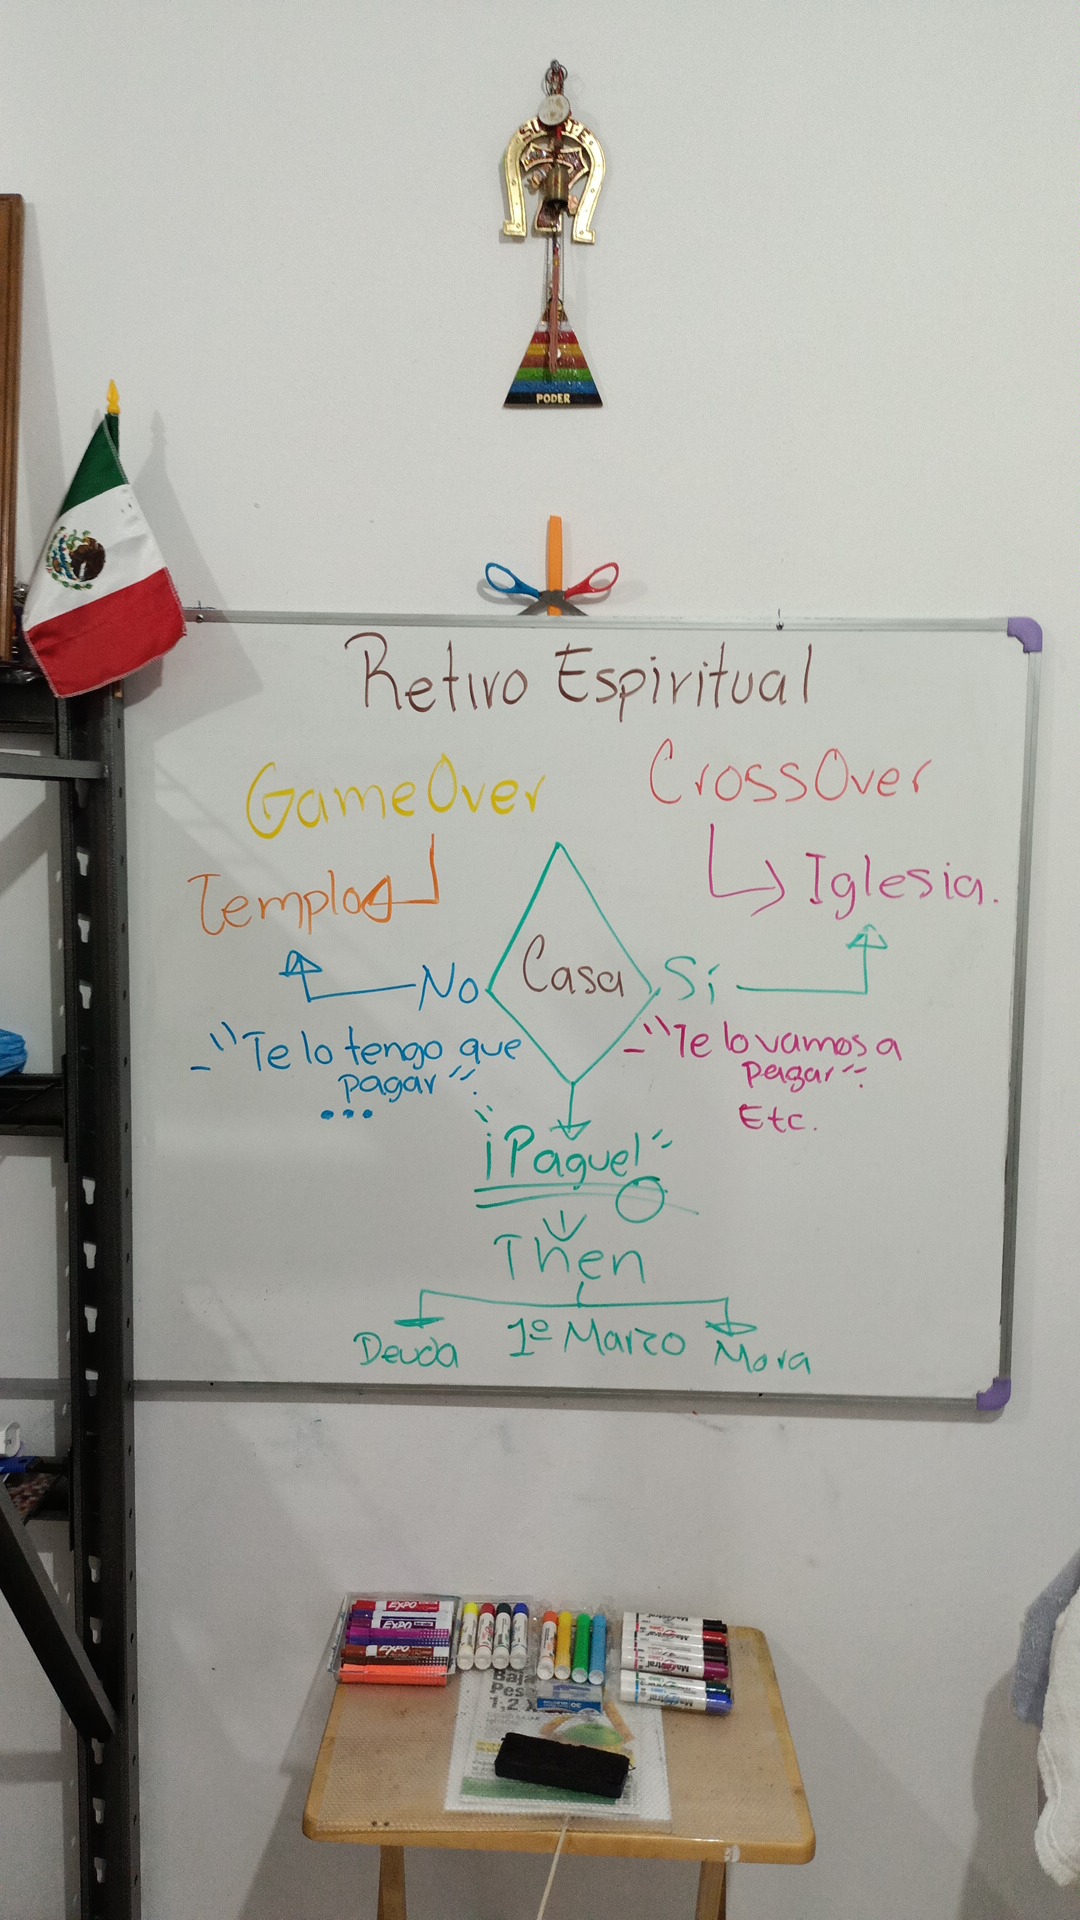 SUERTE
PODER
Retiro Espiritual
GameOver
CrossOver
Templo
Iglesia.
No
Casa
Sí
- "Te lo tengo que
pagar"
...
- "Te lo vamos a
pagar"
Etc.
"¡Pague!"
Then
Deuda
1º Marzo
Mora
EXPO
EXPO
EXPO
Magistral
Magistral
Magistral